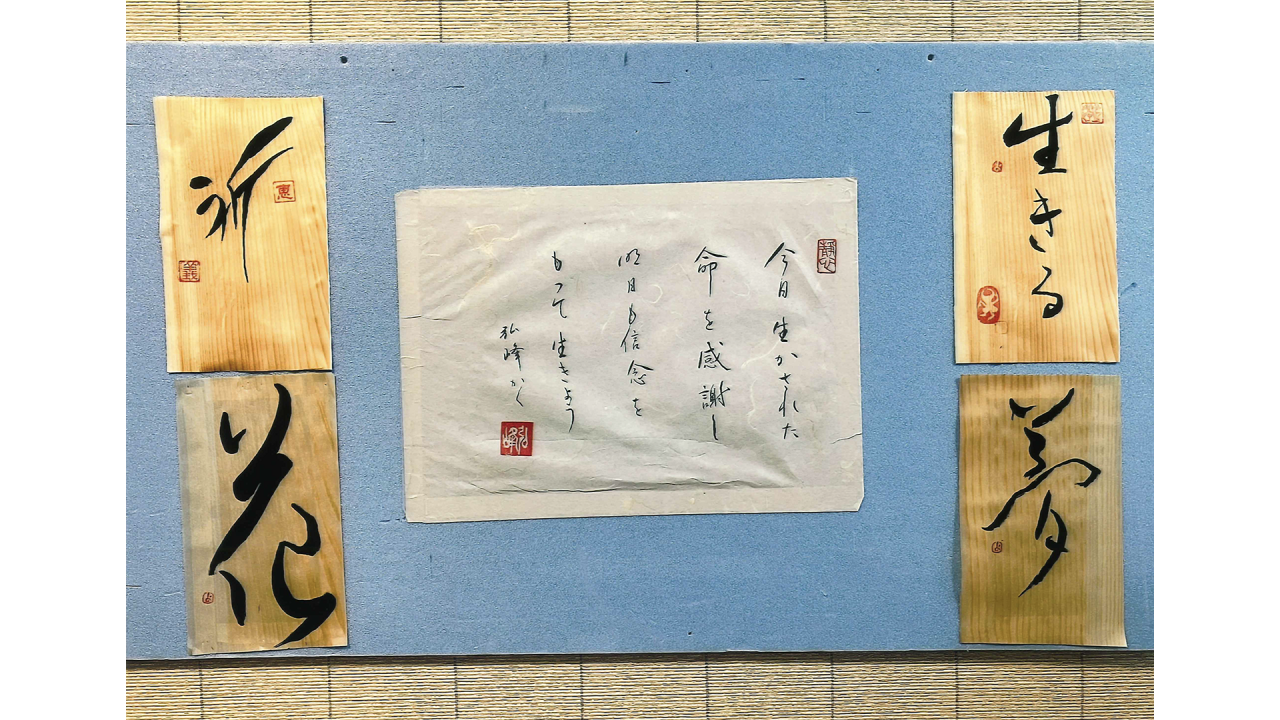 生きる
夢
今日生かされた
命を感謝し
明日も信念を
もって生きよう
弘峰かく
弘峰
祈
花